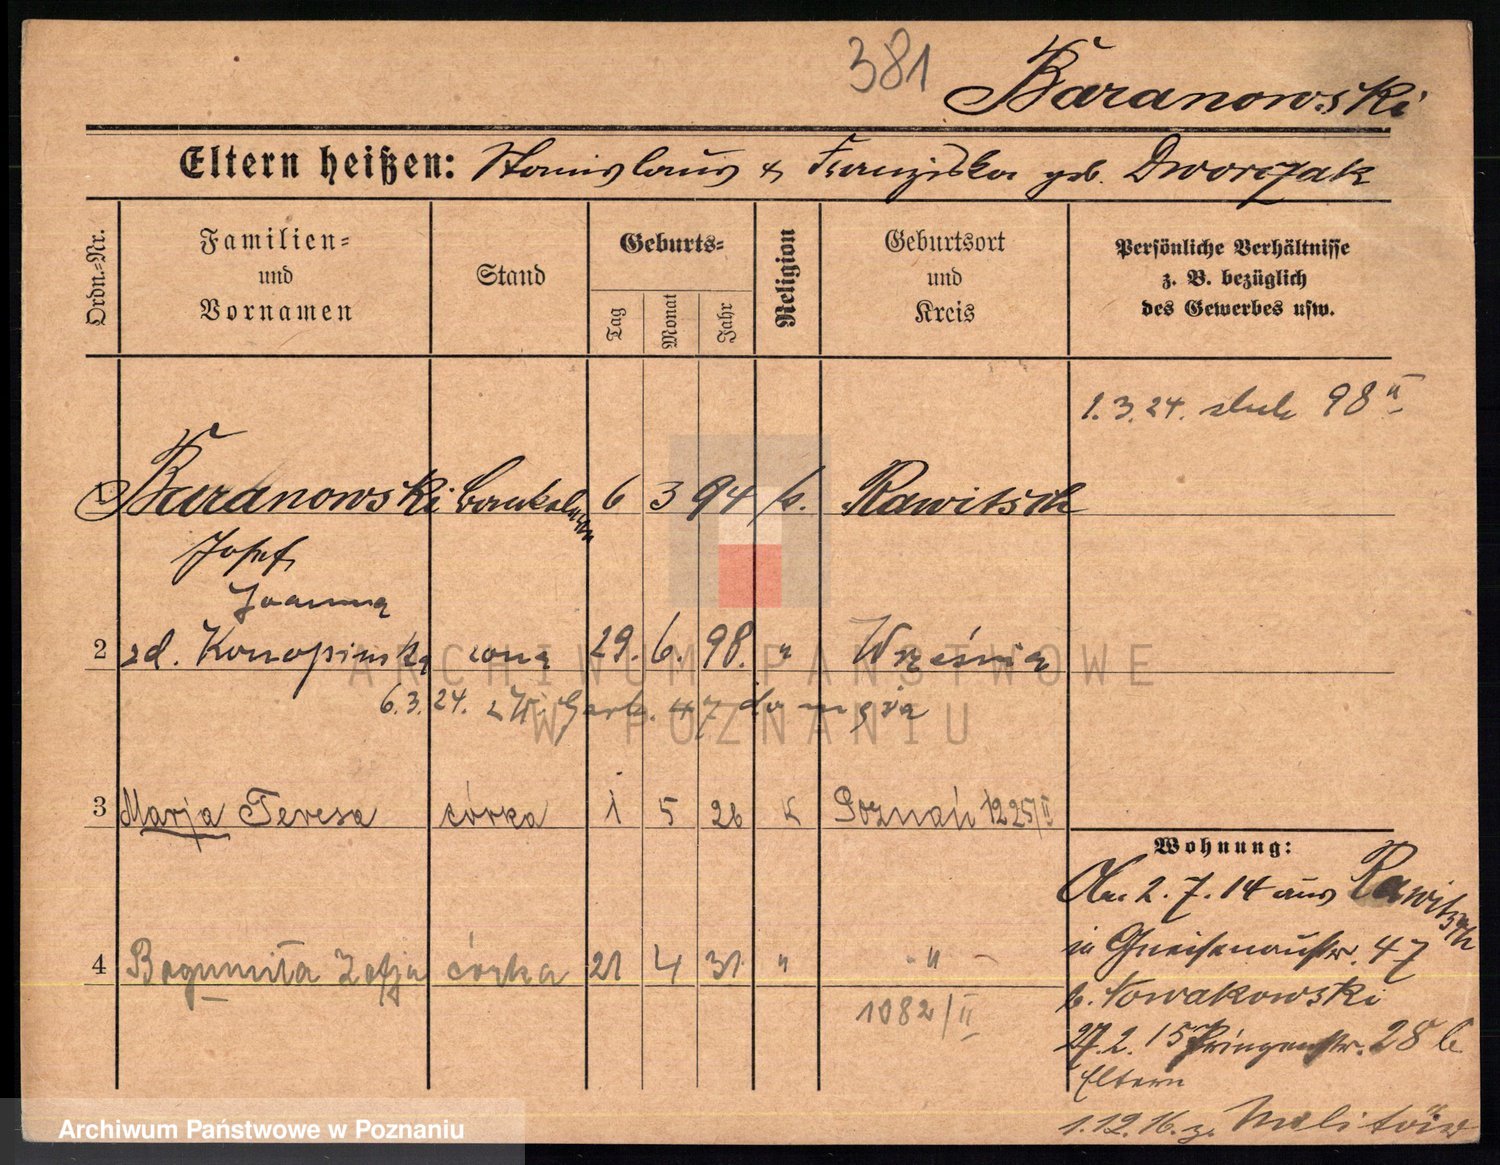 381
Baranowski
Eltern heißen: Stanislaus & Franziska geb. Dworczak
Ordn.-Nr.
Familien-
und
Vornamen
Stand
Geburts-
Tag
Monat
Jahr
Religion
Geburtsort
und
Kreis
Persönliche Verhältnisse
z. B. bezüglich
des Gewerbes usw.
1.3.24. ślub 98 II
1 Baranowski 6 3 94 k. Rawitsch
Josef
Joanna
2 zd. Konopinska żona 29. 6. 98. " Września
6.3.24. z W. Garb. 47 do męża
3 Marja Teresa córka 1 5 26 K Poznań 1225/II
4 Bogumiła Zofja córka 21 4 31 " - " -
1082/II
Wohnung:
An. 2.7.14 aus Rawitsch
in Gneisenaustr. 47
b. Nowakowski
27.2.15 Prinzenstr. 28 b
Eltern
1.12.16. z. Militär
ARCHIWUM PAŃSTWOWE
W POZNANIU
Archiwum Państwowe w Poznaniu